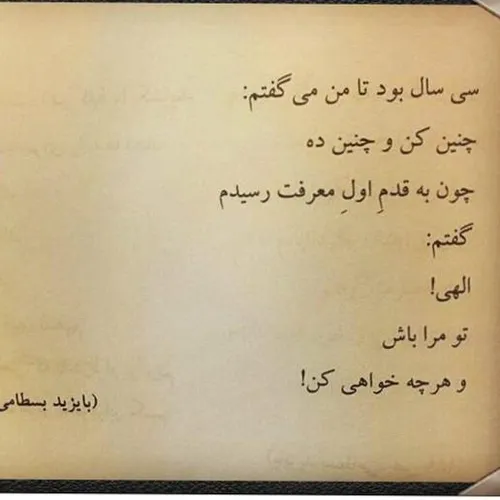 سی سال بود تا من می گفتم:
چنین کن و چنین ده
چون به قدمِ اولِ معرفت رسیدم
گفتم:
الهی!
تو مرا باش
و هرچه خواهی کن!
(بایزید بسطامی